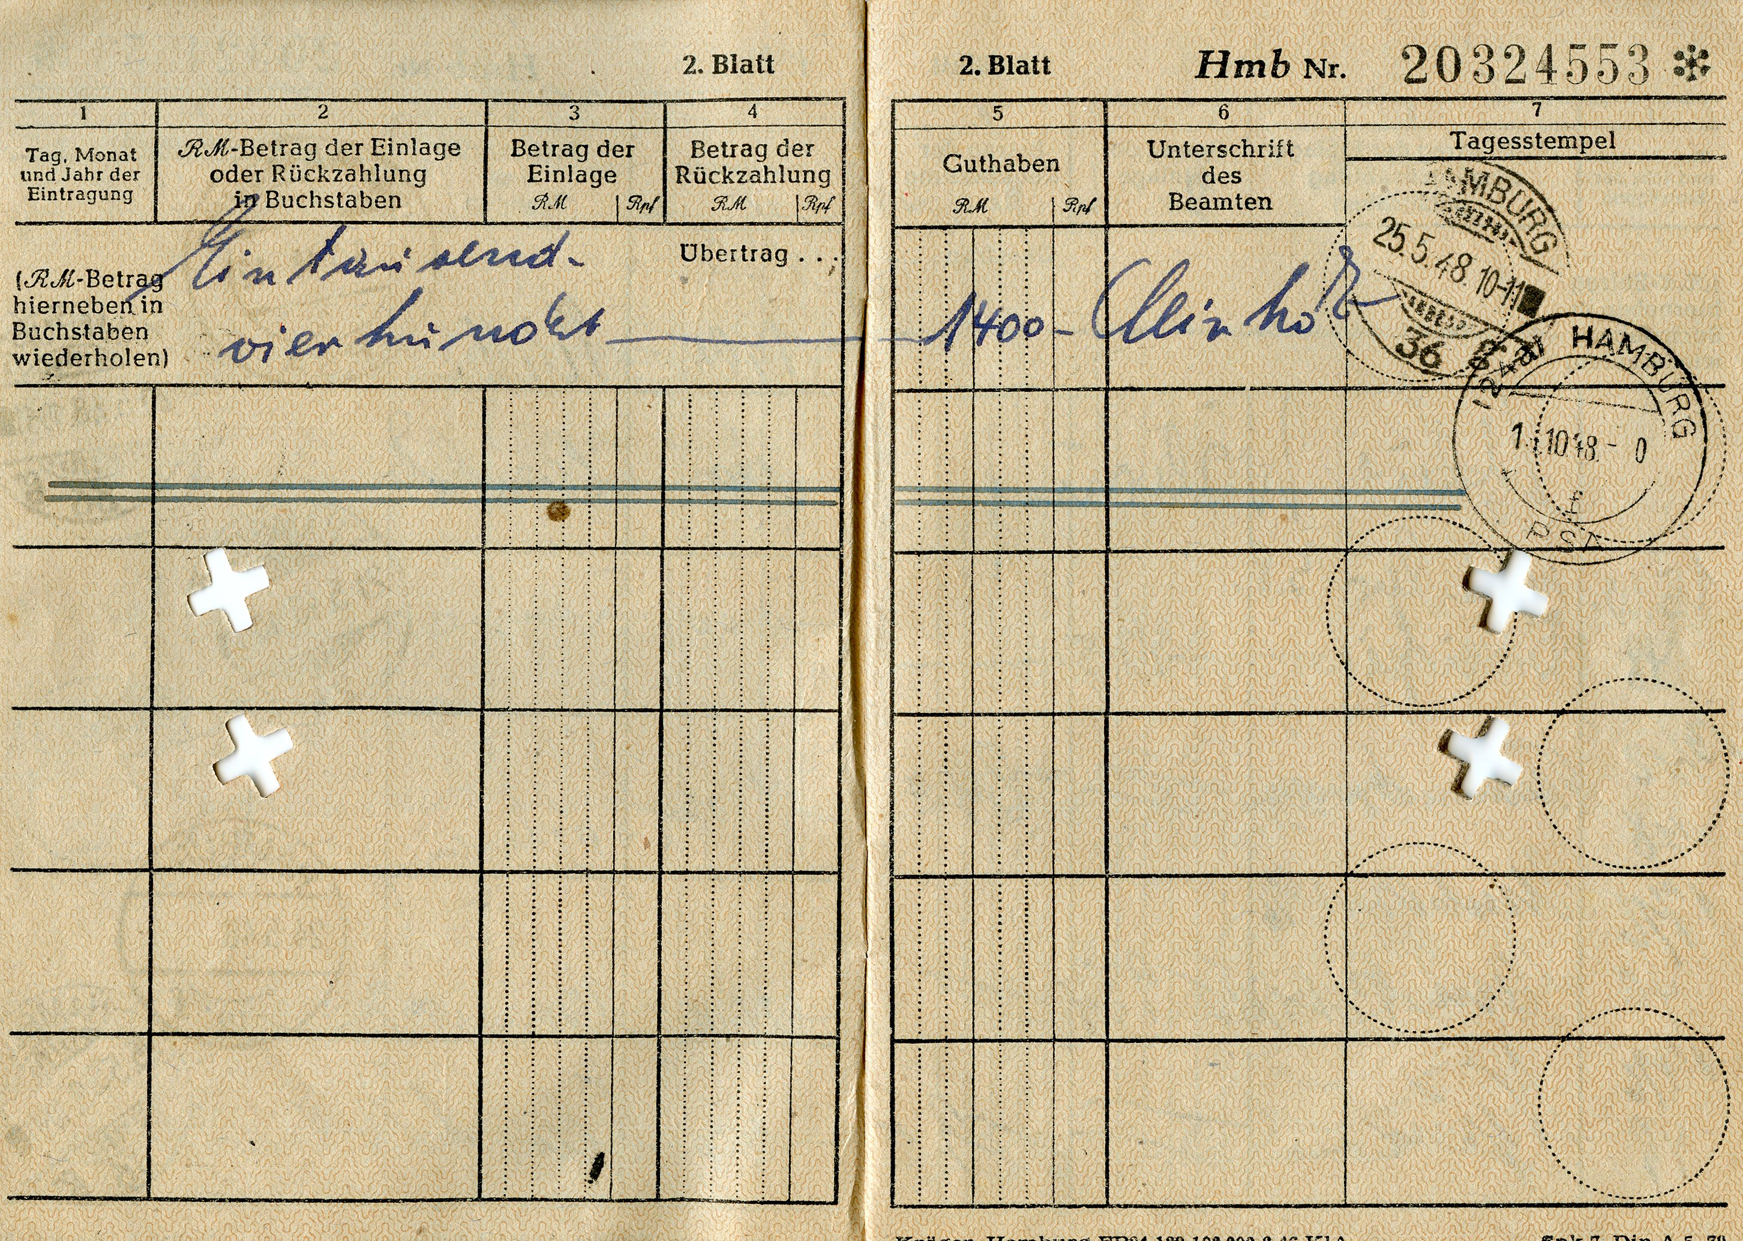 2. Blatt
1 2 3 4
Tag, Monat und Jahr der Eintragung
RM-Betrag der Einlage oder Rückzahlung in Buchstaben
Betrag der Einlage
RM Rpf
Betrag der Rückzahlung
RM Rpf
(RM-Betrag
hierneben in
Buchstaben
wiederholen)
Eintausend-
vierhundert
Übertrag . . .
2. Blatt Hmb Nr. 20324553 *
5 6 7
Guthaben
RM Rpf
Unterschrift
des
Beamten
Tagesstempel
1400-
HAMBURG
25.5.48.10-11
36
HAMBURG
10 48.- 0
f
PSA
Kröger, Hamburg